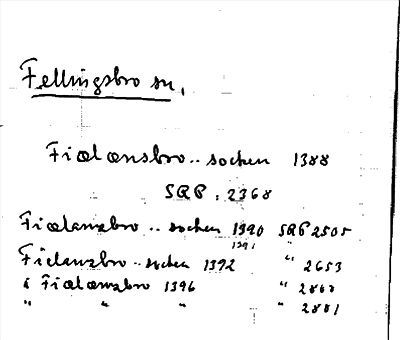 Fellingsbro sn,
Fiælænsbro .. sochen 1388
SRP : 2368
Fiælanzbro .. sochen 1390 SRP 2505
1391 "
Fielanzbro .. sochen 1392 " 2653
i Fiælænzbro 1396 " 2868
" " " " 2881